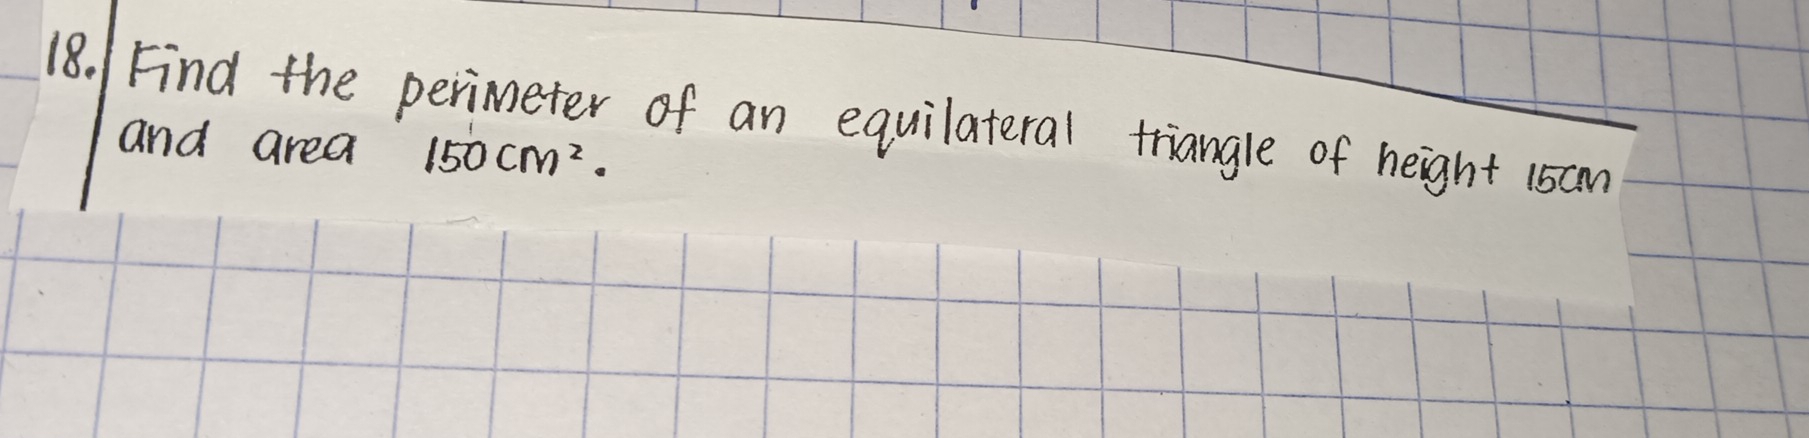 18. Find the perimeter of an equilateral triangle of height 15cm
and area 150cm².